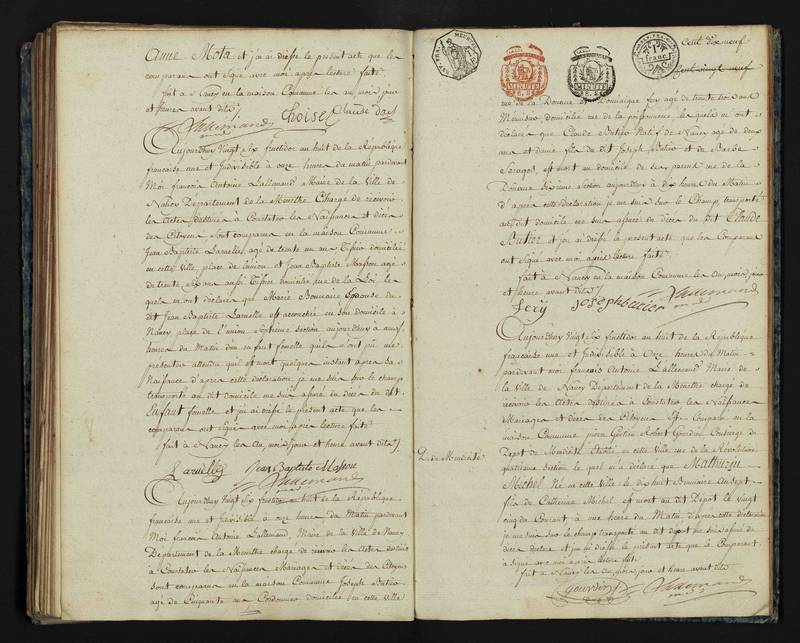 Anne Mota et j'ai dressé le present acte que les
comparans ont signé avec moi après lecture faite
fait à Nancy en la maison Commune les an mois jour
et heures avant dits
Lallemand Choisel Claude
Aujourdhuy vingt six fructidor an huit de la République
francaise une et Indivisible à onze heures du matin pardevant
Moi françois Antoine Lallemand Maire de la Ville de
Nancy Departement de la Meurthe Chargé de recevoir
les Actes destinés à Constater les Naissances et décès
des Citoyens sont comparus en la maison Commune
Jean Baptiste Lamelle agé de trente un ans domicilié
en cette Ville place de lunion et Jean Baptiste Masson agé
de trente six ans aussi domicilié rue de la Loi les
quels m'ont déclaré que Marie Epouse du
dit Jean Baptiste Lamelle est accouchée en son domicile à
Nancy place de l'union septieme section aujourdhuy à
heures du Matin d'un enfant femelle qu'ils n'ont pu me
presenter attendu qu'il est mort quelques instant apres sa
Naissance d'après cette declaration je me suis sur le champ
transporté au dit domicile me suis assuré du décès du dit
Enfant femelle et j'ai dressé le present acte que les
comparans ont signé avec moi après lecture faite
fait à Nancy les an, mois, jour et heure avant dits
Jean Baptiste Masson
Lallemand
Aujourdhuy vingt six fructidor an huit de la République
francaise une et Indivisible à heures du Matin pardevant
Moi françois Antoine Lallemand, Maire de la Ville de Nancy
Departement de la Meurthe chargé de recevoir les Actes destinés
à Constater les Naissances Mariages et décès des Citoyens
sont comparus en la maison Commune Joseph
agé de Cinquante ans Cordonnier domicilié en cette Ville
Cent dix neuf
Cent vingt neuf
MINUTE
MINUTE
1 franc
rue de la Douane et Dominique agé de trente trois ans
Menuisier domicilié rue de la poissonnerie les quels m'ont
déclaré que Claude natif de Nancy agé de deux
ans et demie fils du dit Joseph et de Barbe
est mort au domicile de ses parens rue de la
Douane sixieme section aujourdhuy à heures du Matin
d'après cette déclaration je me suis sur le Champ transporté
au dit domicile me suis assuré du décès du dit Claude
et j'ai dressé le présent acte que les Comparans
ont signé avec moi après lecture faite
fait à Nancy en la maison Commune les an, mois, jour
et heure avant dits
Lallemand
Aujourdhuy vingt six fructidor an huit de la République
francaise une et Indivisible à onze heures du Matin
pardevant moi françois Antoine Lallemand Maire de
la Ville de Nancy Departement de la Meurthe chargé de
recevoir les Actes destinés à Constater les Naissances
Mariages et décès des Citoyens Est Comparu en la
maison Commune, pierre Robert Concierge du
D. de Mendicité
Depot de Mendicité établi en cette Ville rue de la Révolution
quatrieme section le quel m'a déclaré que Mathurin
Michel Né en cette Ville le dix huit Brumaire an sept
fils de Catherine Michel est mort au dit Depot le vingt
cinq du Courant à une heure du Matin d'après cette declaration
je me suis sur le champ transporté au dit depot me suis assuré du
décès déclaré et j'ai dressé le présent acte que le Comparant
à signé avec moi après lecture faite
fait à Nancy les an, mois, jour et heure avant dits
Lallemand